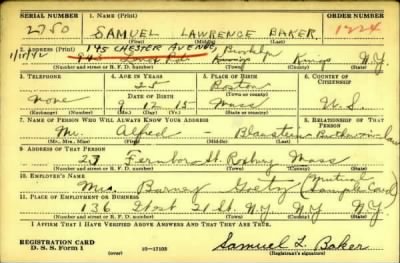 SERIAL NUMBER 1. NAME (Print) ORDER NUMBER
2750 SAMUEL LAWRENCE BAKER 1224
(First) (Middle) (Last)
2. ADDRESS (Print) 145 CHESTER AVENUE, Brooklyn
1/15/42 Kings Kings N.Y.
(Number and street or R. F. D. number) (Town) (County) (State)
3. TELEPHONE 4. AGE IN YEARS 5. PLACE OF BIRTH 6. COUNTRY OF CITIZENSHIP
25 Boston
DATE OF BIRTH (Town or county)
None 9 12 15 Mass U.S.
(Exchange) (Number) (Mo.) (Day) (Yr.) (State or country)
7. NAME OF PERSON WHO WILL ALWAYS KNOW YOUR ADDRESS 8. RELATIONSHIP OF THAT PERSON
Mr. Alfred - Blaustein Brother-in-law
(Mr., Mrs., Miss) (First) (Middle) (Last)
9. ADDRESS OF THAT PERSON
27 St. Roxbury Mass
(Number and street or R. F. D. number) (Town) (County) (State)
10. EMPLOYER'S NAME
Mrs. Barney Goetz (Mutual Sample Card)
11. PLACE OF EMPLOYMENT OR BUSINESS
136 West 21 St. N.Y N.Y N.Y.
(Number and street or R. F. D. number) (Town) (County) (State)
I AFFIRM THAT I HAVE VERIFIED ABOVE ANSWERS AND THAT THEY ARE TRUE.
REGISTRATION CARD
D. S. S. Form 1 (over) 16—17105 Samuel L. Baker
(Registrant's signature)